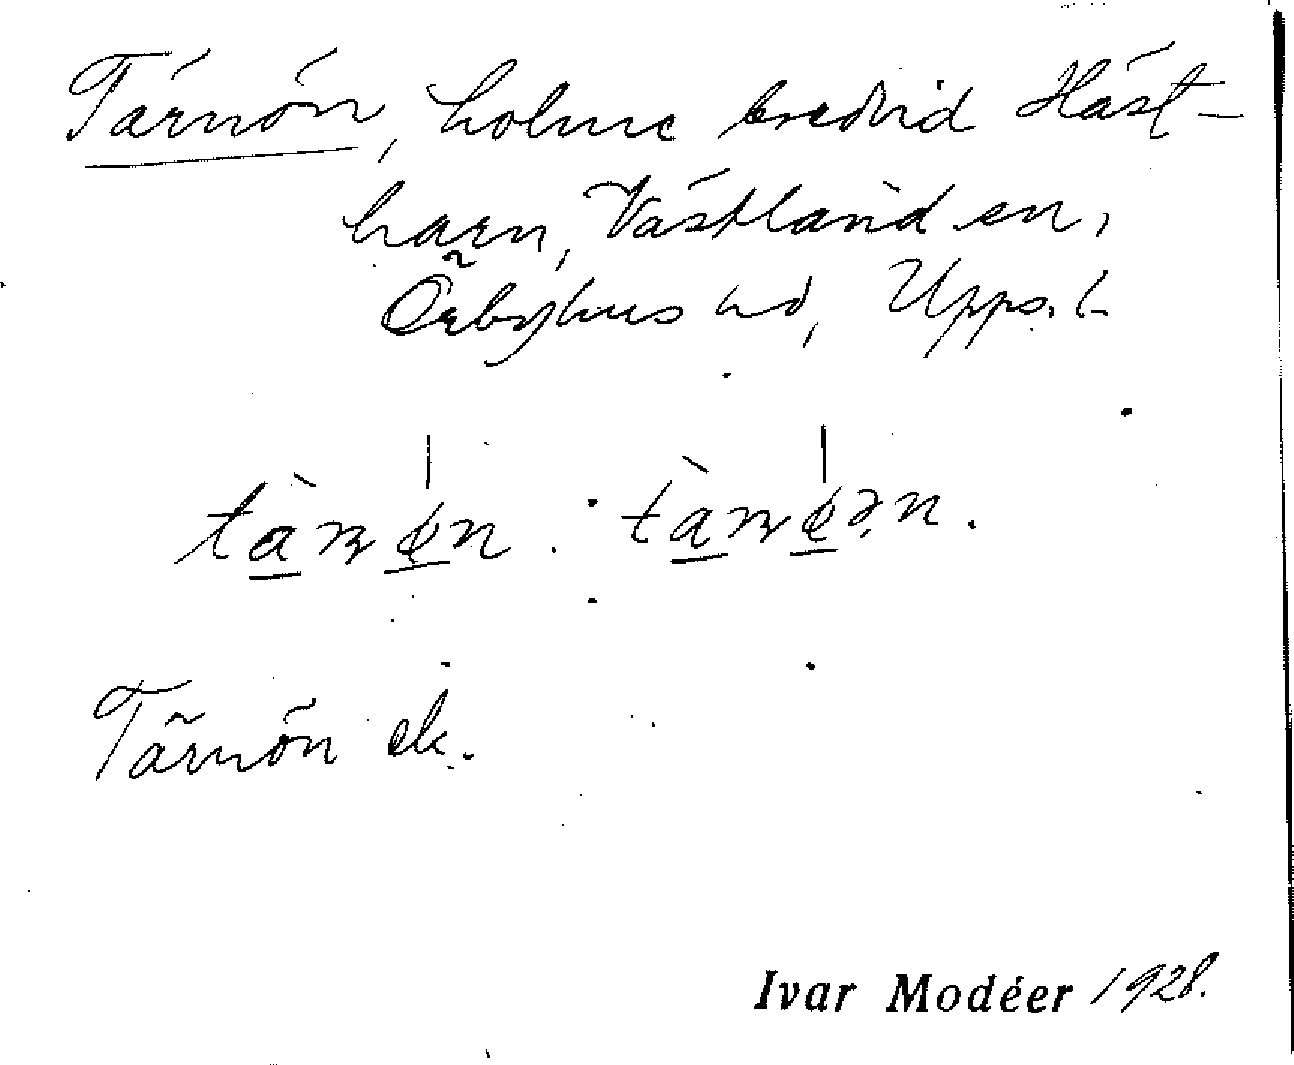 Tärnön, holme bredvid Häst-
harn, Västland sn,
Örbyhus hd, Upps. l.
tà̱rnø̱n . tà̱rnø̱ən.
Tärnön ek.
Ivar Modéer 1928.